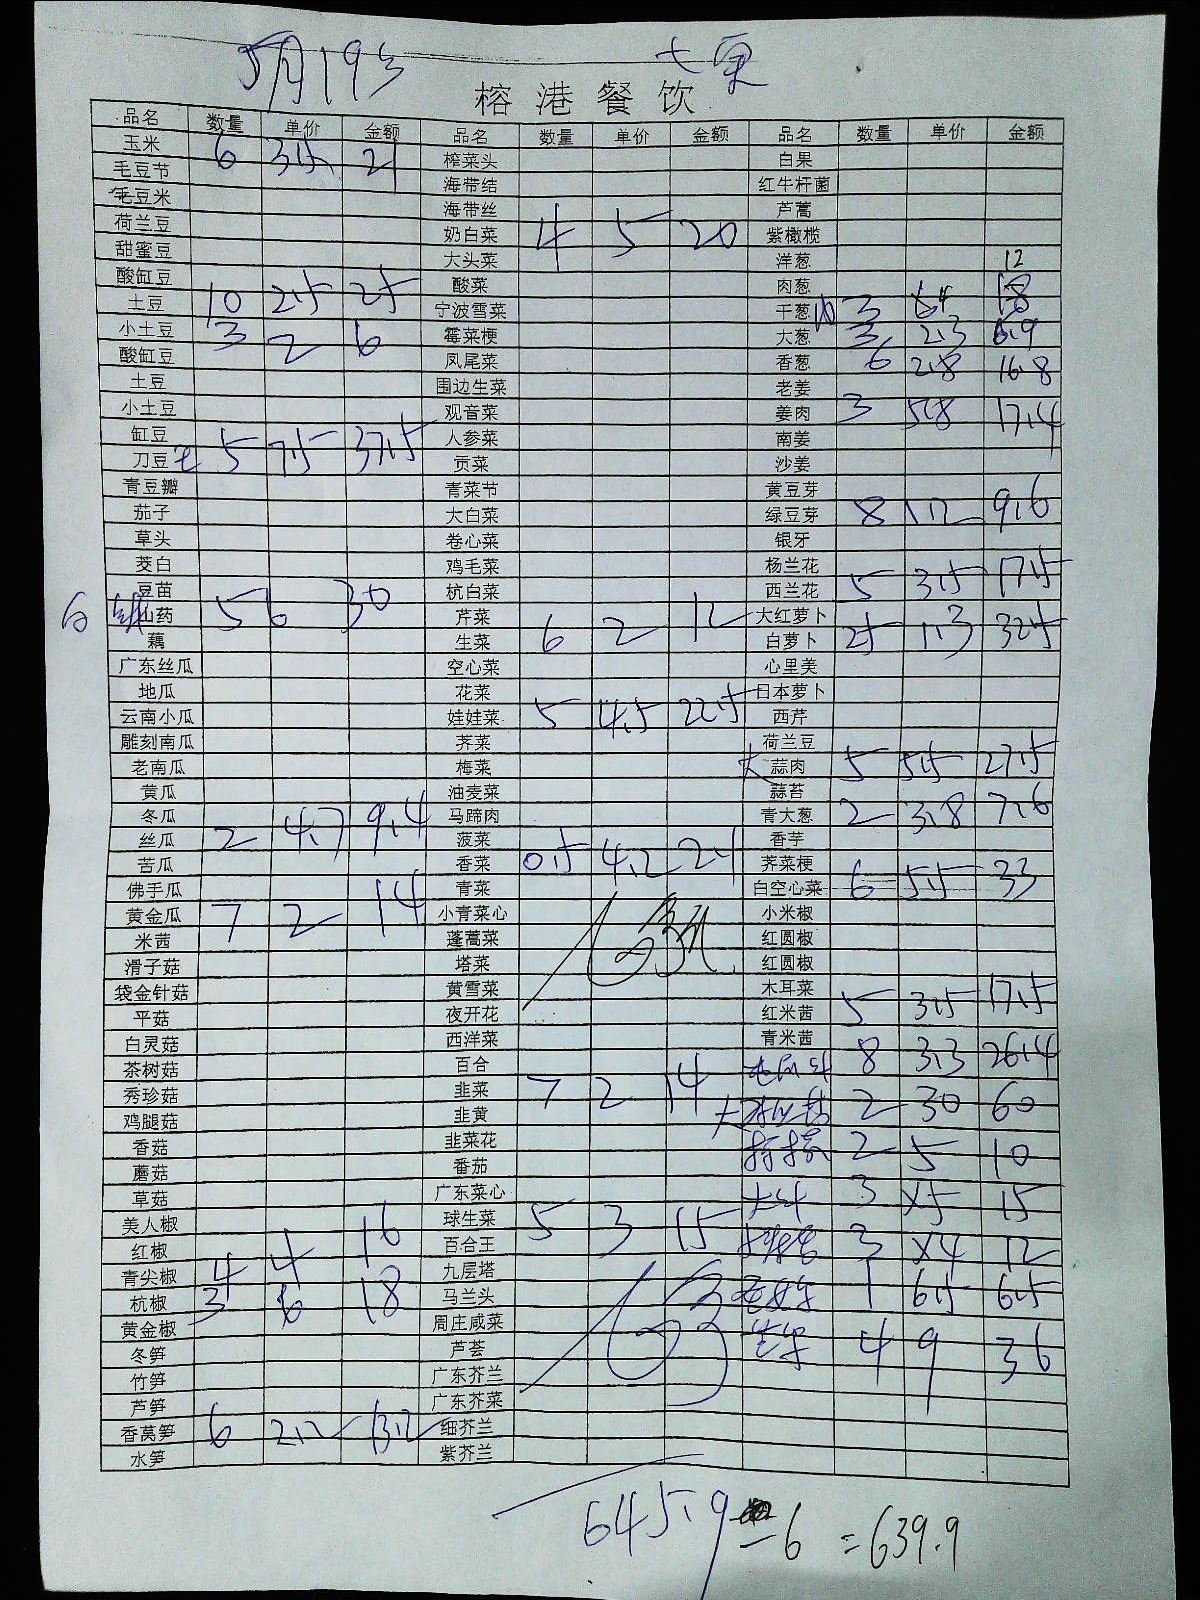 5月19号
榕港餐饮
品名 数量 单价 金额 品名 数量 单价 金额 品名 数量 单价 金额
玉米 6 3.5 21 榨菜头 白果
毛豆节 海带结 红牛杆菌
毛豆米 海带丝 芦蒿
荷兰豆 奶白菜 4 5 20 紫橄榄
甜蜜豆 大头菜 洋葱 12
酸缸豆 酸菜 肉葱
土豆 10 2.5 25 宁波雪菜 干葱肉 3 4 18
小土豆 3 2 6 霉菜梗 大葱 3 2.3 6.9
酸缸豆 凤尾菜 香葱 6 2.8 16.8
土豆 围边生菜 老姜
小土豆 观音菜 姜肉 3 5.8 17.4
缸豆 人参菜 南姜
刀豆 5 7.5 37.5 贡菜 沙姜
青豆瓣 青菜节 黄豆芽
茄子 大白菜 绿豆芽 8 1.2 9.6
草头 卷心菜 银牙
茭白 鸡毛菜 杨兰花
豆苗 杭白菜 西兰花 5 3.5 17.5
山药 5 6 30 芹菜 大红萝卜
藕 生菜 6 2 12 白萝卜 25 1.3 32.5
广东丝瓜 空心菜 心里美
地瓜 花菜 日本萝卜
云南小瓜 娃娃菜 5 4.5 22.5 西芹
雕刻南瓜 荠菜 荷兰豆
老南瓜 梅菜 大蒜肉 5 5.5 27.5
黄瓜 油麦菜 蒜苔
冬瓜 马蹄肉 青大葱 2 3.8 7.6
丝瓜 2 4.7 9.4 菠菜 香芋
苦瓜 香菜 0.5 4.2 2.1 荠菜梗
佛手瓜 青菜 白空心菜 6 5.5 33
黄金瓜 7 2 14 小青菜心 小米椒
米茜 蓬蒿菜 红圆椒
滑子菇 塔菜 红圆椒
袋金针菇 黄雪菜 木耳菜
平菇 夜开花 红米茜 5 3.5 17.5
白灵菇 西洋菜 青米茜
茶树菇 百合 8 3.3 26.4
秀珍菇 韭菜 7 2 14 2 30 60
鸡腿菇 韭黄
香菇 韭菜花 2 5 10
蘑菇 番茄
草菇 广东菜心 3 ×5 15
美人椒 球生菜 5 3 15
红椒 4 4 16 百合王 3 ×4 12
青尖椒 九层塔
杭椒 3 6 18 马兰头 1 6.5 6.5
黄金椒 周庄咸菜
冬笋 芦荟 4 9 36
竹笋 广东芥兰
芦笋 广东芥菜
香莴笋 6 2.2 13.2 细芥兰
水笋 紫芥兰
645.9 -6 =639.9